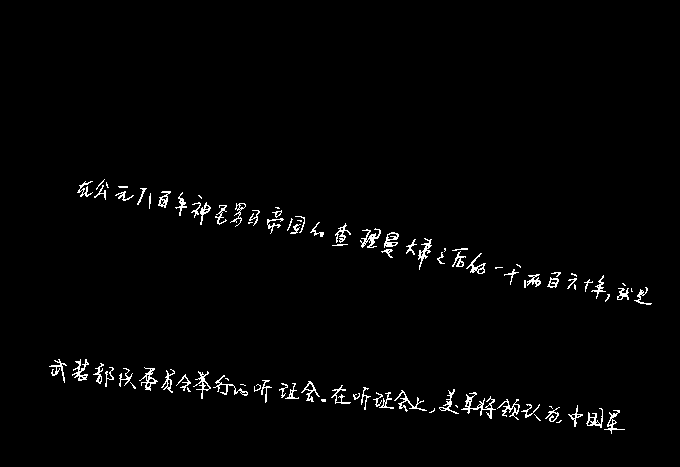 在公元八百年神圣罗马帝国的查理曼大帝之后的一千两百六十年,就是
武装部队委员会举行的听证会。在听证会上,美军将领认为中国军